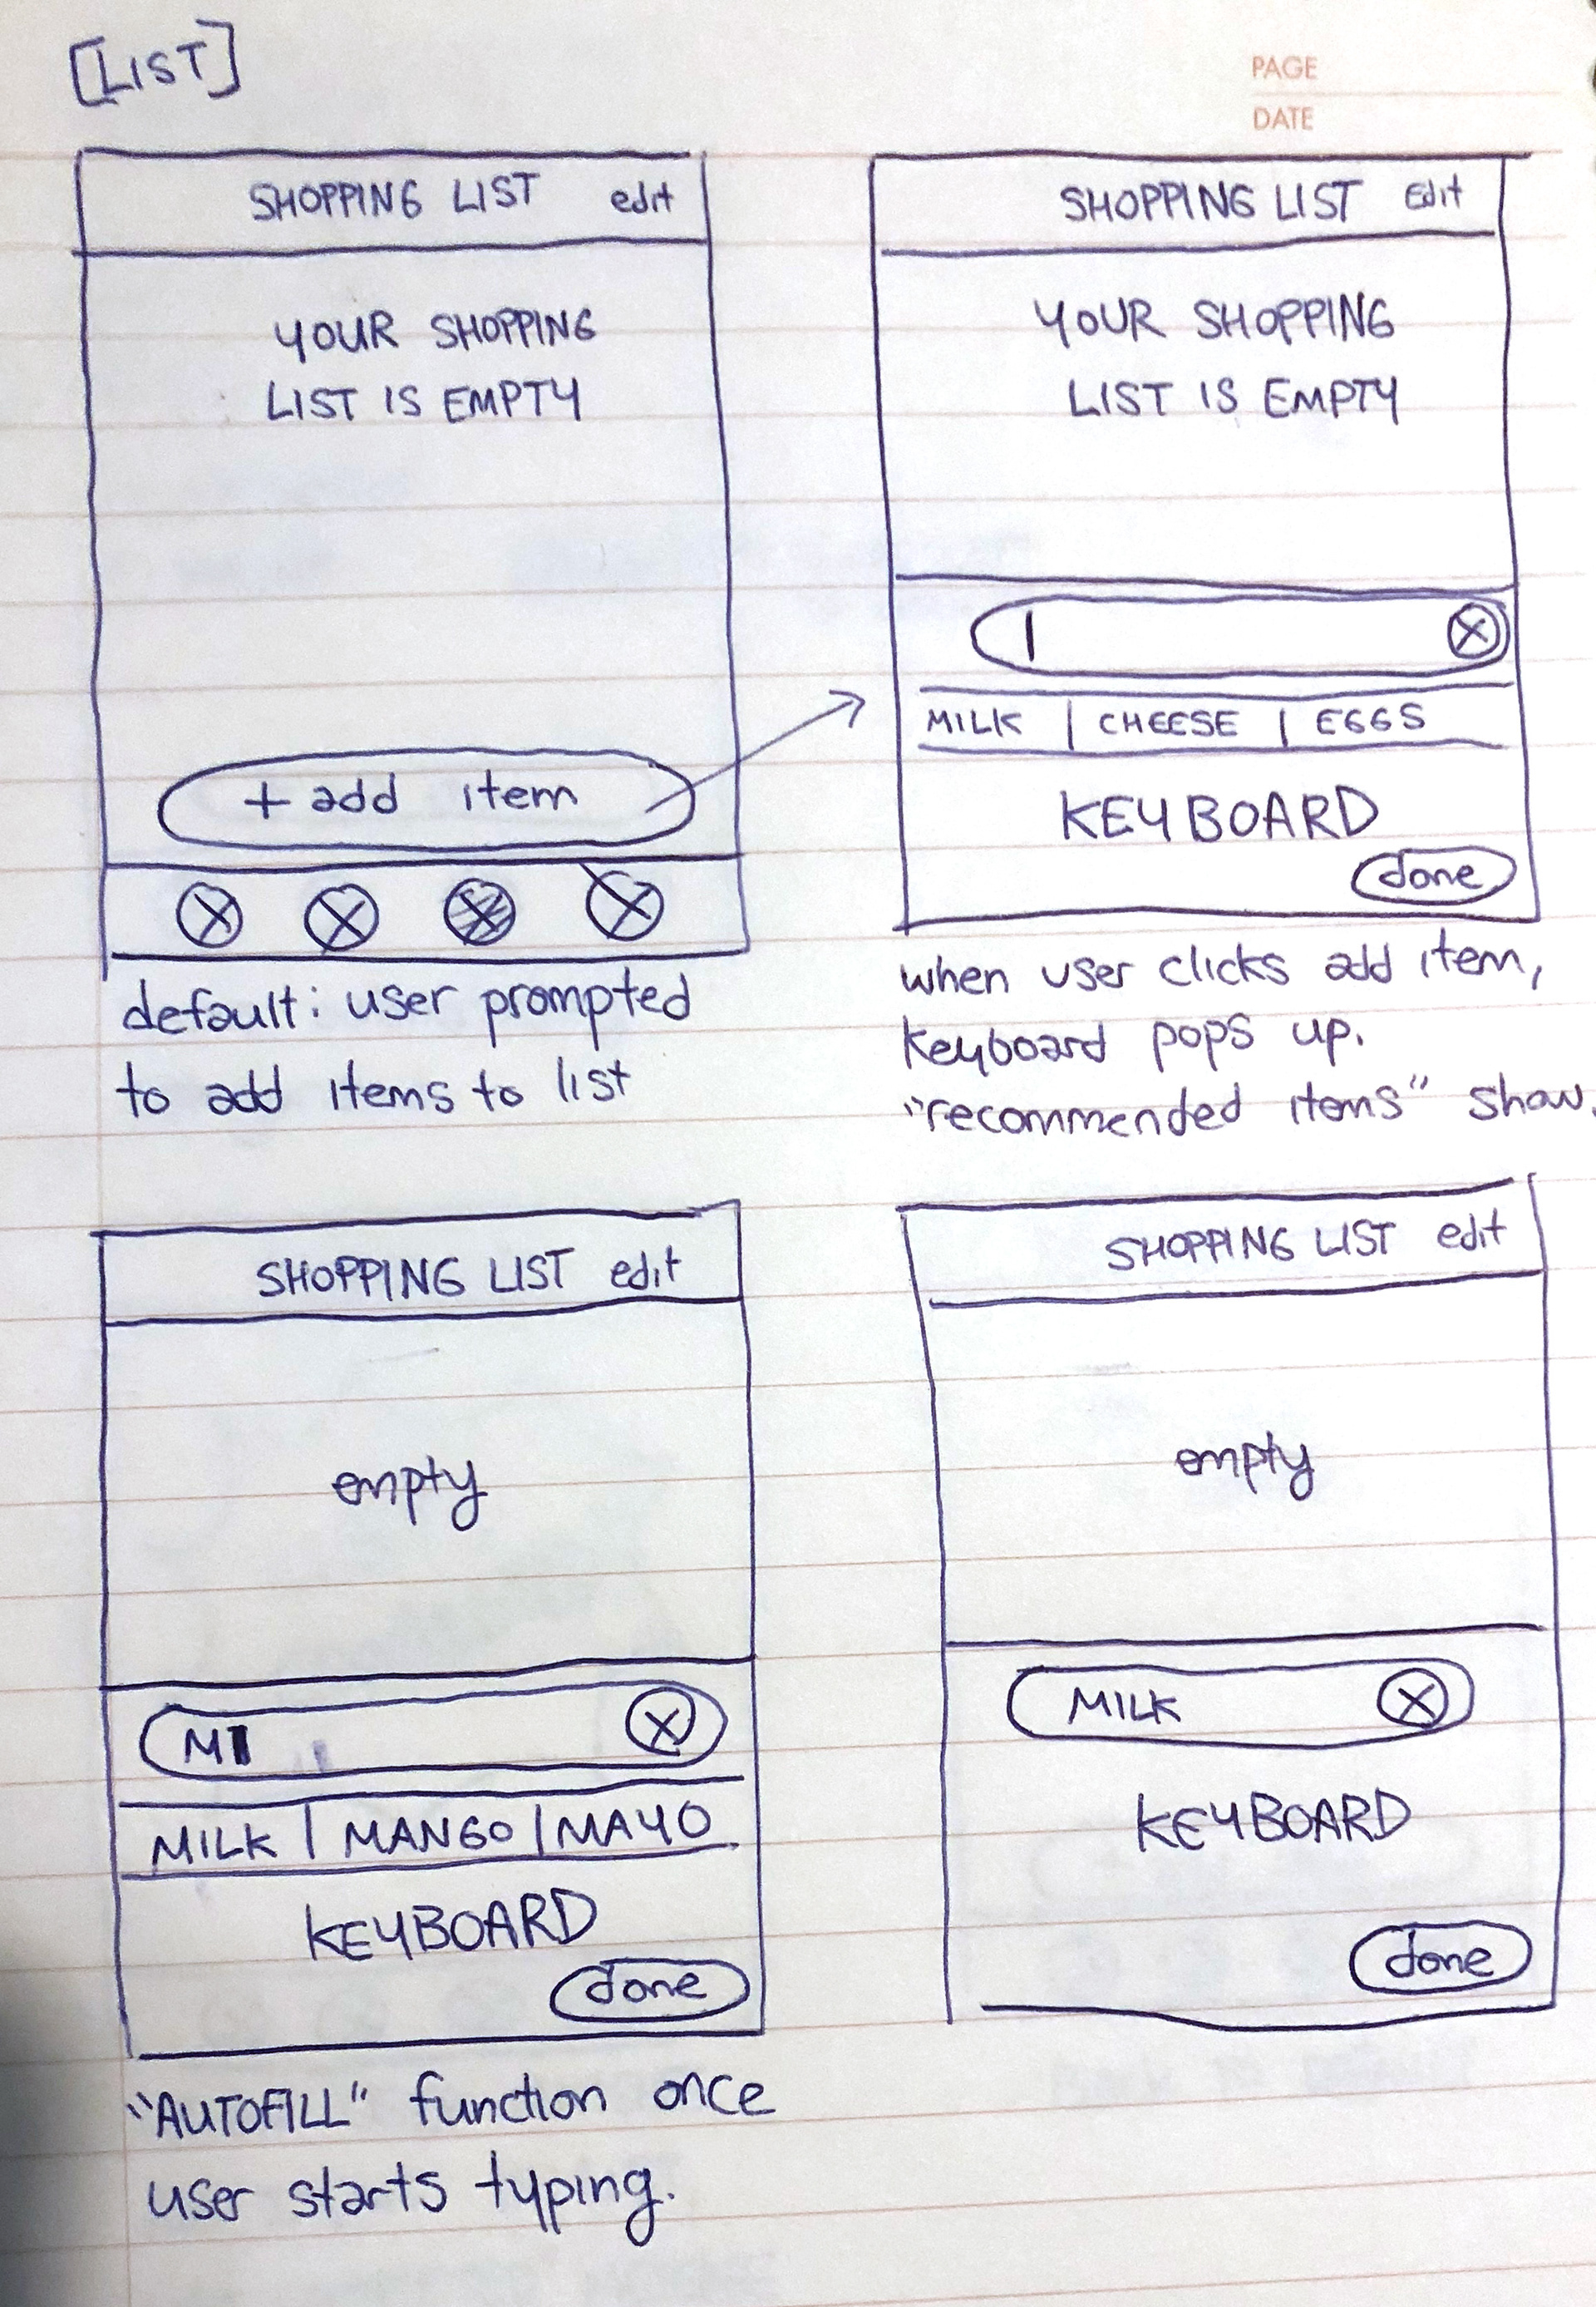 [LIST]
PAGE
DATE
SHOPPING LIST edit
YOUR SHOPPING
LIST IS EMPTY
+ add item
default: user prompted
to add items to list
SHOPPING LIST Edit
YOUR SHOPPING
LIST IS EMPTY
MILK | CHEESE | EGGS
KEYBOARD
done
when user clicks add item,
keyboard pops up.
"recommended items" show.
SHOPPING LIST edit
empty
M
MILK | MANGO | MAYO
KEYBOARD
done
"AUTOFILL" function once
user starts typing.
SHOPPING LIST edit
empty
MILK
KEYBOARD
done